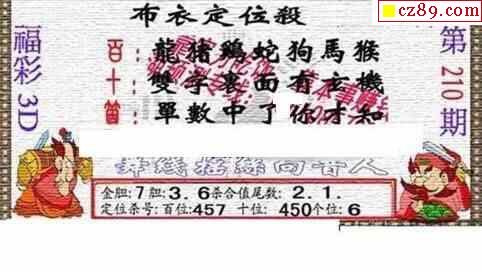 cz89.com
布衣定位殺
福彩3D
第210期
百：龍猪鷄蛇狗馬猴
十：雙字裏面有玄機
單數中了你才知
金胆:7胆:3.6杀合值尾数:2.1.
定位杀号:百位:457 十位:450个位:6